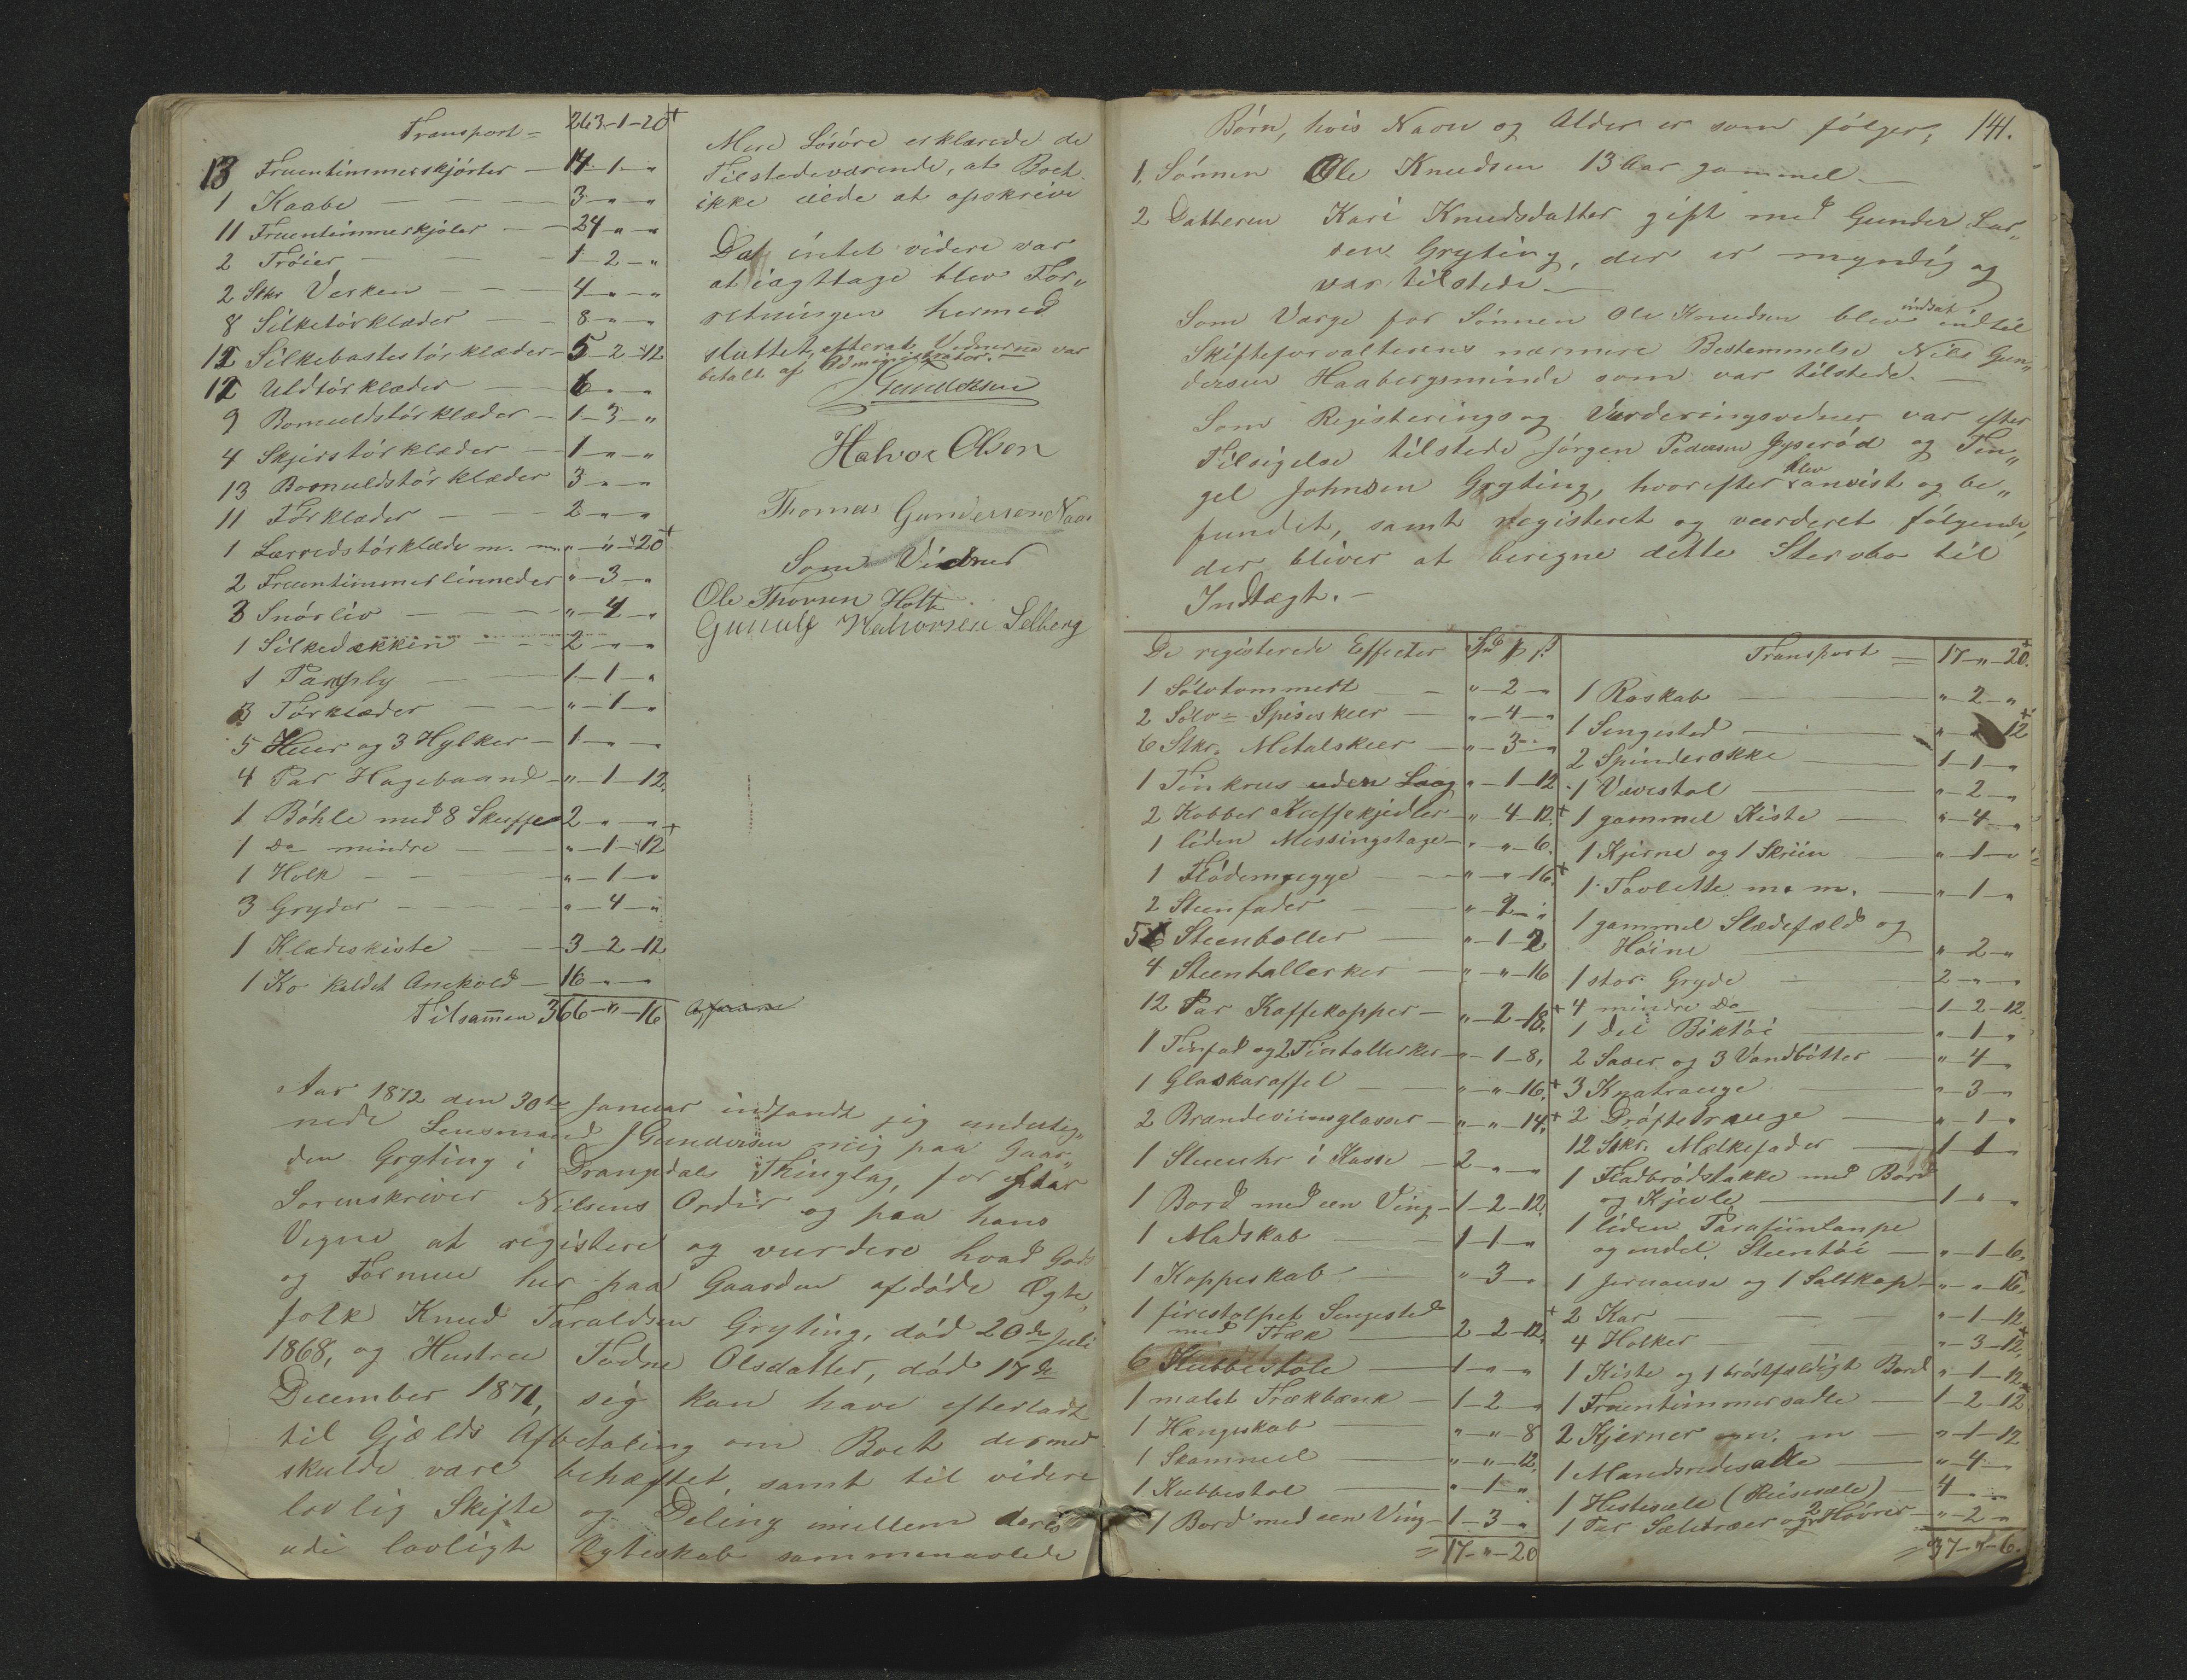 Transport = 263-1-20
13 Fruentimmerskjörter — 14-1-"
1 Kaabe — 3-"-"
11 Fruentimmerkjoler — 24-"-"
2 Tröier — 1-2-"
2 Stkr Verken — 4-"-"
8 Silketörklæder — 8-"-"
12 Silkebastestörklæder — 5-2-12
12 Uldtörklæder — 6-"-"
9 Bomuldstörklæder — 1-3-"
4 Skjerstörklæder — 1-"-"
13 Bomuldstörklæder 3-"-"
11 Forklæder — 2-"-"
1 Lærredstörklæde m. m. "-"-20
2 Fruentimmerlinneder "-3-"
3 Snörliv — "-4-"
1 Silkedækken — 2-"-"
1 Paraply — 1-1-"
3 Törklæder — "-1-"
5 Huer og 3 Hylker — 1-"-"
4 Par Hagebaand — "-1-12
1 Böhle med 8 Skuffer 2-"-"
1 Do mindre — "-1-12
1 Holk — "-1-"
3 Gryder — "-4-"
1 Klædeskiste — 3-2-12
1 Ko kaldet Anekold — 16-"-"
Tilsammen 366-"-16
Aar 1872 den 30te Januar indfandt jig underteg„
nede Lensmand J Gundersen mig paa Gaar„
den Gryting i Drangedals Thinglag, for efter
Sorenskriver Nilsens Ordre og paa hans
Vegne at registere og vurdere hvad Gods
og Formue her paa Gaarden afdöde Ægte„
folk Knud Taraldsen Gryting, död 20de Juli
1868, og Hustrue Todne Olsdatter, död 17de
December 1871, sig kan have efterladt
til Gjælds Afbetaling om Boet dermed
skulde være behæftet, samt til videre
lovlig Skifte og Deling imellem deres
udi lovligt Ægteskab sammenavlede
Mere Lösöre erklærede de
Tilstedeværende, at Boet
ikke eiede at opskrive
Da intet videre var
at iagttage blev For„
retningen hermed
sluttet, efterat Vidnerne var
betalt af Administrator.
J. Gundersen
Halvor Olsen
Thomas Gundersen Naas
Som Vidner
Ole Thorsen Holte
Gunulf Halvorsen Selberg
141.
Börn, hvis Navn og Alder er som fölger;
1, Sönnen Ole Knudsen 13 Aar gammel. —
2 Datteren Kari Knudsdatter gift med Gunder Lar„
sen Gryting, der er myndig og
var tilstede. —
Som Værge for Sönnen Ole Knudsen blev indsat indtil
Skifteforvalterens nærmere Bestemmelse Nils Gun„
dersen Haabergsminde som var tilstede. —
Som Registerings og Vurderingsvidner var efter
Tilsigelse tilstede Jörgen Pedersen Jyseröd og Ten„
gel Johnsen Gryting, hvorefter blev anvist og be„
fundet, samt registeret og vurderet fölgende,
der bliver at beregne dette Stervbo til
Indtægt. —
De registerede Effecter Spd ƥ ß
1 Sölvtommert — "-2-"
2 Sölv=Spiseskeer — "-4-"
6 Stkr. Metalskeer — "-3-"
1 Tinkrus uden Laag "-1-12
2 Kobber Kaffekjedler — "-4-12
1 liden Messingstage — "-"-6
1 Flödemugge — "-"-16
2 Steenfader — "-2-"
5 Steenboller — "-1-2
4 Steentallerker — "-"-16
12 Par Kaffekopper — "-2-18
1 Tinfad og 2 Tintallerker — "-1-8
1 Glaskaraffel — "-"-16
2 Brændeviinsglasser — "-"-14
1 Stueuhr i Kasse — 2-"-"
1 Bord med een Ving — 1-2-12
1 Madskab — 1-1-"
1 Koppeskab — "-3-"
1 firestolpet Sengested
med Træk — 2-2-12
6 Kubbestole — 1-"-"
1 malet Trækbænk — 1-2-"
1 Hængeskab — "-"-8
1 Skammel — "-"-12
1 Kubbestol — "-1-"
1 Bord med een Ving — 1-3-"
= 17-"-20
Transport = 17-"-20
1 Roskab — "-2-"
1 Sengested — "-"-12
2 Spinderokke — 1-1-"
1 Vævestol — "-2-"
1 gammel Kiste — "-4-"
1 Kjerne og 1 Skriin — "-1-"
1 Tavlette m. m. — "-1-"
1 gammel Slædefæld og
Höine — "-2-"
1 stor Gryde — 2-"-"
4 mindre Do — 1-2-12
1 Del Biktöi — "-1-"
2 Saaer og 3 Vandbötter — "-4-"
3 Knatrauge — "-3-"
2 Dröftetrauge — "-1-"
12 Stkr. Melkefader — 1-1-"
1 Fladbrödstakke med Bord
og Kjevle — 1-"-"
1 liden Parafiinlampe
og endel Steentöi — "-1-6
1 Jernause og 1 Saltkop — "-"-16
2 Kar — "-1-12
4 Holker — "-3-12
1 Kiste og 1 bröstfældigt Bord "-1-12
1 Fruentimmersadle — 1-2-12
2 Kjerner m. m — "-1-12
1 Mandsridesadle — "-4-"
1 Hestesele (Reisesele) — 4-"-"
1 Par Seletræer og 2 Hövrer — "-2-"
= 37-"-6.